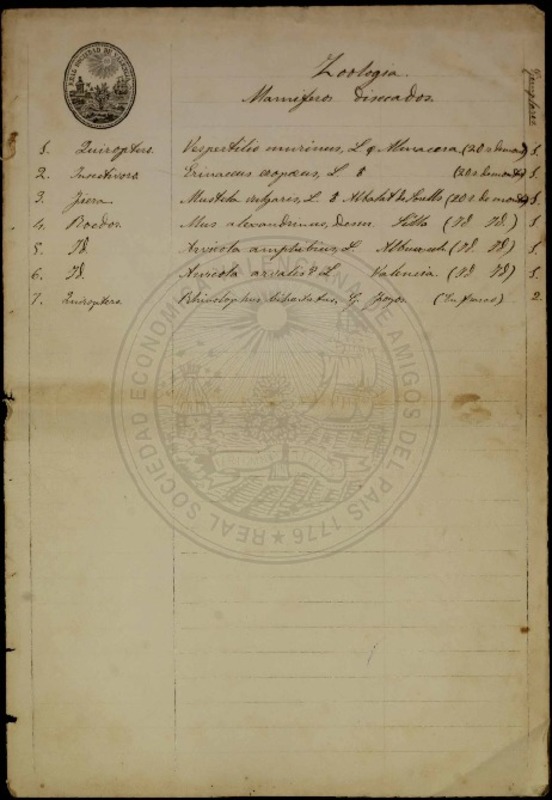 REAL SOCIEDAD DE VALENCIA
Zoologia.
Mamiferos disecados.
Ejemplares
1. Quiroptero. Vespertilio murinus, L. ♀ Almacera (20 r. de mont) 1.
2. Insectivoro. Erinaceus europæus, L. ♂ (20 r. de mont) 1.
3. Fiera. Mustela vulgares, L. ♂ Albalat de (20 r. de mont) 1.
4. Roedor. Mus alexandrinus, Silla (Id. Id.) 1.
5. Id. Arvicola amphibius, L. (Id. Id.) 1.
6. Id. Arvicola arvalis? L. Valencia. (Id. Id.) 1.
7. Quiroptero. Rhinolophus G. (En frasco) 2.
REAL SOCIEDAD ECONOMICA VALENCIANA DE AMIGOS DEL PAIS 1776